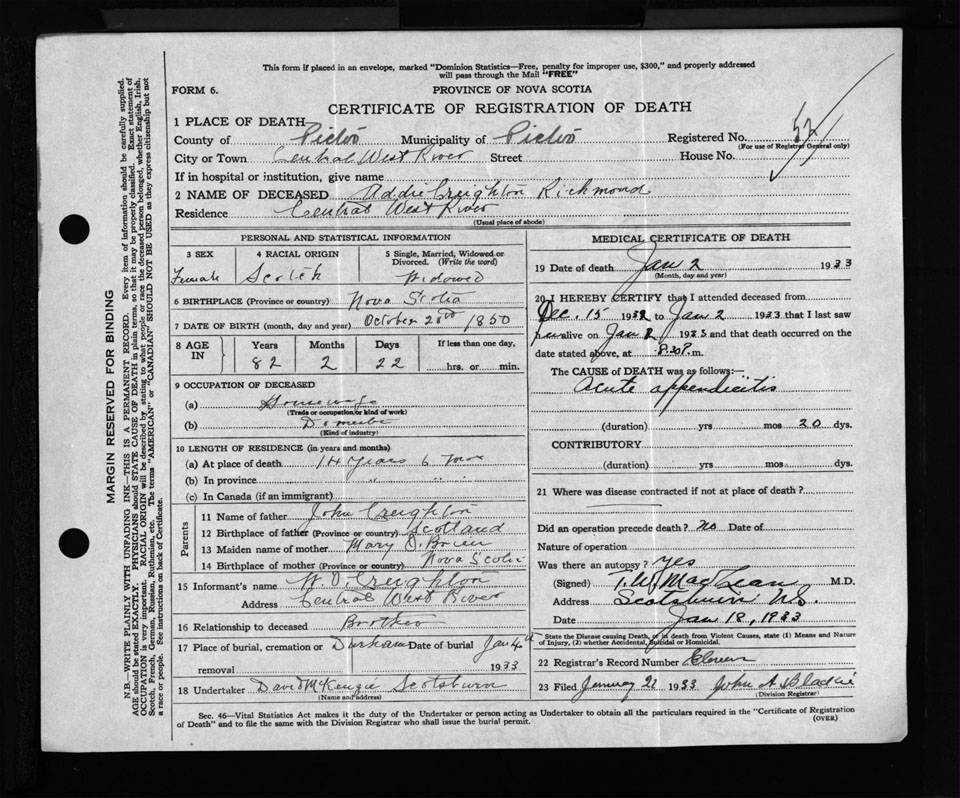 This form if placed in an envelope, marked "Dominion Statistics—Free, penalty for improper use, $300," and properly addressed
will pass through the Mail "FREE"
FORM 6.
PROVINCE OF NOVA SCOTIA
CERTIFICATE OF REGISTRATION OF DEATH
1 PLACE OF DEATH
County of Pictou Municipality of Pictou Registered No.
(For use of Registrar General only)
City or Town Central West River Street House No.
If in hospital or institution, give name
2 NAME OF DECEASED Addie Creighton Richmond
Residence Central West River
(Usual place of abode)
PERSONAL AND STATISTICAL INFORMATION
3 SEX 4 RACIAL ORIGIN 5 Single, Married, Widowed or
Divorced. (Write the word)
Female Scotch Widowed
6 BIRTHPLACE (Province or country) Nova Scotia
7 DATE OF BIRTH (month, day and year) October 1850
8 AGE IN Years Months Days If less than one day,
82 2 22 hrs. or min.
9 OCCUPATION OF DECEASED
(a) Housewife
(Trade or occupation or kind of work)
(b) Domestic
(Kind of industry)
10 LENGTH OF RESIDENCE (in years and months)
(a) At place of death 14 years 6 mos
(b) In province " "
(c) In Canada (if an immigrant)
Parents
11 Name of father John Creighton
12 Birthplace of father (Province or country) Scotland
13 Maiden name of mother Mary O. Brien
14 Birthplace of mother (Province or country) Nova Scotia
15 Informant's name W. D. Creighton
Address Central West River
16 Relationship to deceased Brother
17 Place of burial, cremation or Durham Date of burial Jan 4th
removal 1933
18 Undertaker David McKenzie Scotsburn
(Name and address)
MEDICAL CERTIFICATE OF DEATH
19 Date of death Jan 2 1933
(Month, day and year)
20 I HEREBY CERTIFY that I attended deceased from
Dec. 15 1932 to Jan 2 1933 that I last saw
alive on Jan 2 1933 and that death occurred on
date stated above, at 8.30 P. m.
The CAUSE of DEATH was as follows:—
Acute appendicitis
(duration) yrs mos 20 dys.
CONTRIBUTORY
(duration) yrs. mos. dys.
21 Where was disease contracted if not at place of death?
Did an operation precede death? No Date of
Nature of operation
Was there an autopsy? yes
(Signed) T. W. MacLean M.D.
Address Scotsburn N.S.
Date Jan 18, 1933
State the Disease causing Death, or in death from Violent Causes, state (1) Means and Nature
of Injury, (2) whether Accidental, Suicidal or Homicidal.
22 Registrar's Record Number Eleven
23 Filed January 21 1933 John A. Blackie
(Division Registrar)
Sec. 46—Vital Statistics Act makes it the duty of the Undertaker or person acting as Undertaker to obtain all the particulars required in the "Certificate of Registration
of Death" and to file the same with the Division Registrar who shall issue the burial permit.
(OVER)
MARGIN RESERVED FOR BINDING
N.B.—WRITE PLAINLY WITH UNFADING INK—THIS IS A PERMANENT RECORD. Every item of information should be carefully supplied.
AGE should be stated EXACTLY. PHYSICIANS should STATE CAUSE OF DEATH in plain terms, so that it may be properly classified. Exact statement of
OCCUPATION is very important. RACIAL ORIGIN will be described by stating to what people or race the deceased person belonged, whether English, Irish,
Scotch, French, German, Russian, Ruthenian, etc. The terms "AMERICAN" or "CANADIAN" SHOULD NOT BE USED as they express citizenship but not
a race or people. See instructions on back of Certificate.